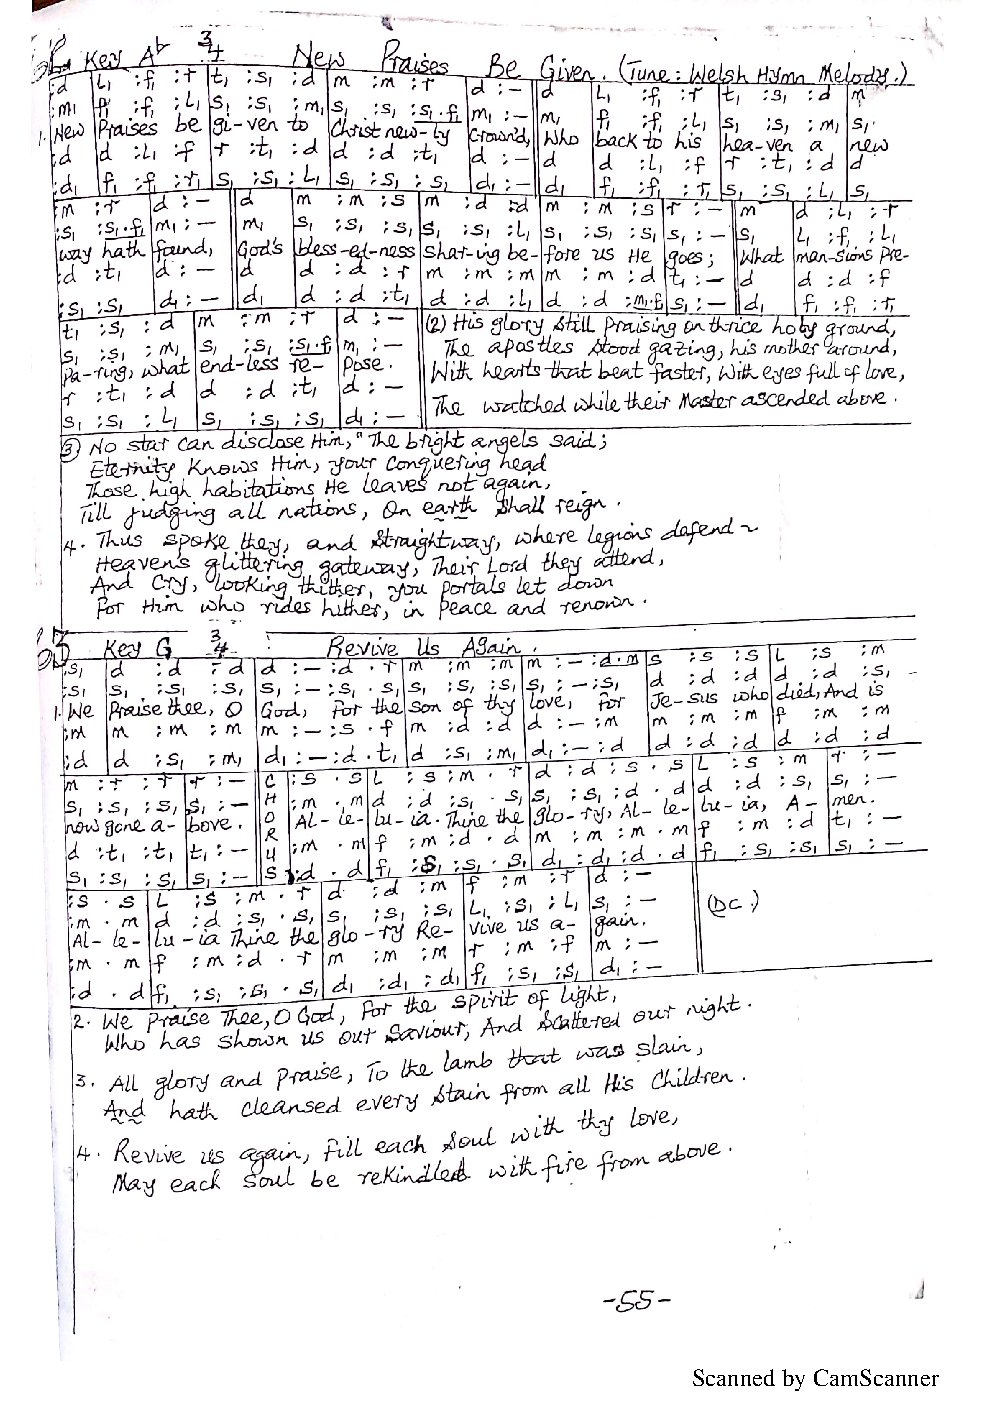 Key Ab 3/4 New Praises Be Given. (Tune: Welsh Hymn Melody.)
:d | L₁ :f₁ :r | t₁ :s₁ :d | m :m :r | d :- || d | L₁ :f₁ :r | t₁ :s₁ :d | m
:m₁ | f₁ :f₁ :L₁ | s₁ :s₁ :m₁ | s₁ :s₁ :s₁.f₁ | m₁ :- || m₁ | f₁ :f₁ :L₁ | s₁ :s₁ :m₁ | s₁.
1. New Praises be gi-ven to Christ new-ly Crown'd, Who back to his hea-ven a new
:d | d :L₁ :f | r :t₁ :d | d :d :t₁ | d :- || d | d :L₁ :f | r :t₁ :d | d
:d₁ | f₁ :f₁ :r₁ | s₁ :s₁ :L₁ | s₁ :s₁ :s₁ | d₁ :- || d₁ | f₁ :f₁ :r₁ | s₁ :s₁ :L₁ | s₁
m :r | d :- || d | m :m :s | m :d :d | m :m :s | r :- || m | d :L₁ :r
:s₁ :s₁.f₁ | m₁ :- || m₁ | s₁ :s₁ :s₁ | s₁ :s₁ :L₁ | s₁ :s₁ :s₁ | s₁ :- || s₁ | L₁ :f₁ :L₁
way hath found, God's bless-ed-ness shar-ing be-fore us He goes; What man-sions Pre-
:d :t₁ | d :- || d | d :d :r | m :m :m | m :m :d | t₁ :- || d | d :d :f
:s₁ :s₁ | d₁ :- || d₁ | d :d :t₁ | d :d :L₁ | d :d :m₁.f₁ | s₁ :- || d₁ | f₁ :f₁ :r₁
t₁ :s₁ :d | m :m :r | d :- ||
s₁ :s₁ :m₁ | s₁ :s₁ :s₁.f | m₁ :-
Pa-ring, what end-less re-Pose.
r :t₁ :d | d :d :t₁ | d :-
s₁ :s₁ :L₁ | s₁ :s₁ :s₁ | d₁ :-
(2) His glory still praising on thrice holy ground,
The apostles stood gazing, his mother around,
With hearts that beat faster, with eyes full of love,
The watched while their Master ascended above.
(3) No star can disclose Him," The bright angels said;
Eternity Knows Him, your Conquering head
Those high habitations He leaves not again,
Till judging all nations, On earth shall reign.
4. Thus spoke they, and straightway, where legions defend ~
Heaven's glittering gateway, Their Lord they attend,
And Cry, looking thither, you portals let down
For Him who rides hither, in peace and renown.
Key G 3/4 Revive Us Again.
:s₁ | d :d :d | d :- :d.r | m :m :m | m :- :d.m | s :s :s | L :s :m
:s₁ | s₁ :s₁ :s₁ | s₁ :- :s₁.s₁ | s₁ :s₁ :s₁ | s₁ :- :s₁ | d :d :d | d :d :s₁
1. We Praise thee, O God, for the son of thy love, for Je-sus who died, And is
:m | m :m :m | m :- :s.f | m :d :d | d :- :m | m :m :m | f :m :m
:d | d :s₁ :m₁ | d₁ :- :d.t₁ | d :s₁ :m₁ | d₁ :- :d | d :d :d | d :d :d
m :r :r | r :- | CHORUS :s.s | L :s :m.r | d :d :s.s | L :s :m | r :-
s₁ :s₁ :s₁ | s₁ :- | :m.m | d :d :s₁.s₁ | s₁ :s₁ :d.d | d :d :s₁ | s₁ :-
now gone a-bove. Al-le-lu-ia. Thine the glo-ry, Al-le-lu-ia, A-men.
d :t₁ :t₁ | t₁ :- | :m.m | f :m :d.d | m :m :m.m | f :m :d | t₁ :-
s₁ :s₁ :s₁ | s₁ :- | :d.d | f₁ :s₁ :s₁.s₁ | d₁ :d₁ :d.d | f₁ :s₁ :s₁ | s₁ :-
:s.s | L :s :m.r | d :d :m | f :m :r | d :- ||
:m.m | d :d :s₁.s₁ | s₁ :s₁ :s₁ | L₁ :s₁ :L₁ | s₁ :-
Al-le-lu-ia Thine the glo-ry Re-vive us a-gain.
:m.m | f :m :d.r | m :m :m | r :m :f | m :-
:d.d | f₁ :s₁ :s₁.s₁ | d₁ :d₁ :d₁ | f₁ :s₁ :s₁ | d₁ :-
(D.C.)
2. We Praise Thee, O God, for the Spirit of light,
Who has shown us our Saviour, And scattered our night.
3. All glory and praise, To the lamb that was slain,
And hath cleansed every stain from all His Children.
4. Revive us again, fill each soul with thy love,
May each soul be rekindled with fire from above.
-55-
Scanned by CamScanner